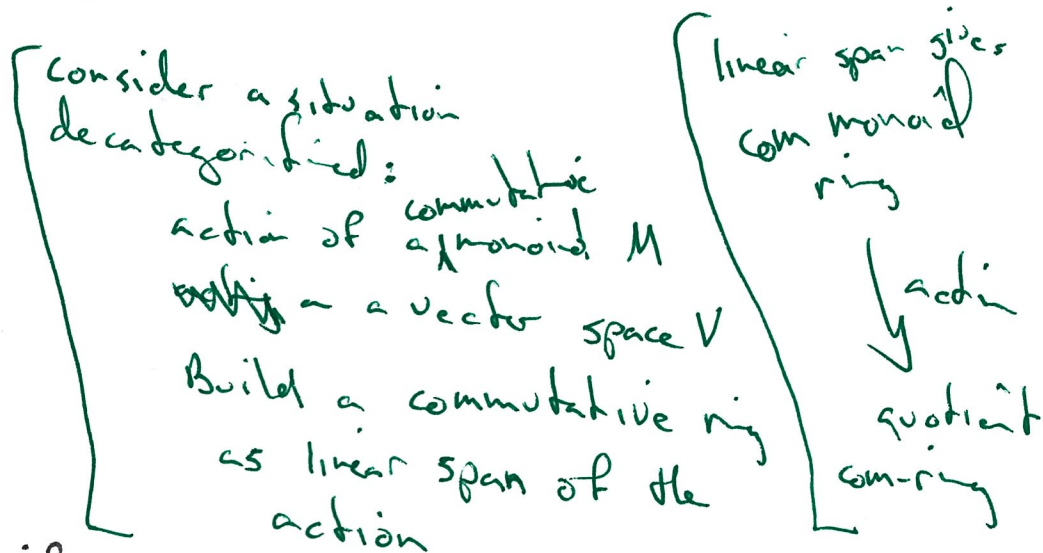 consider a situation
decategorified:
action of a commutative monoid M
on a vector space V
Build a commutative ring
as linear span of the
action
linear span gives
com monoid
ring
action
quotient
com-ring
if